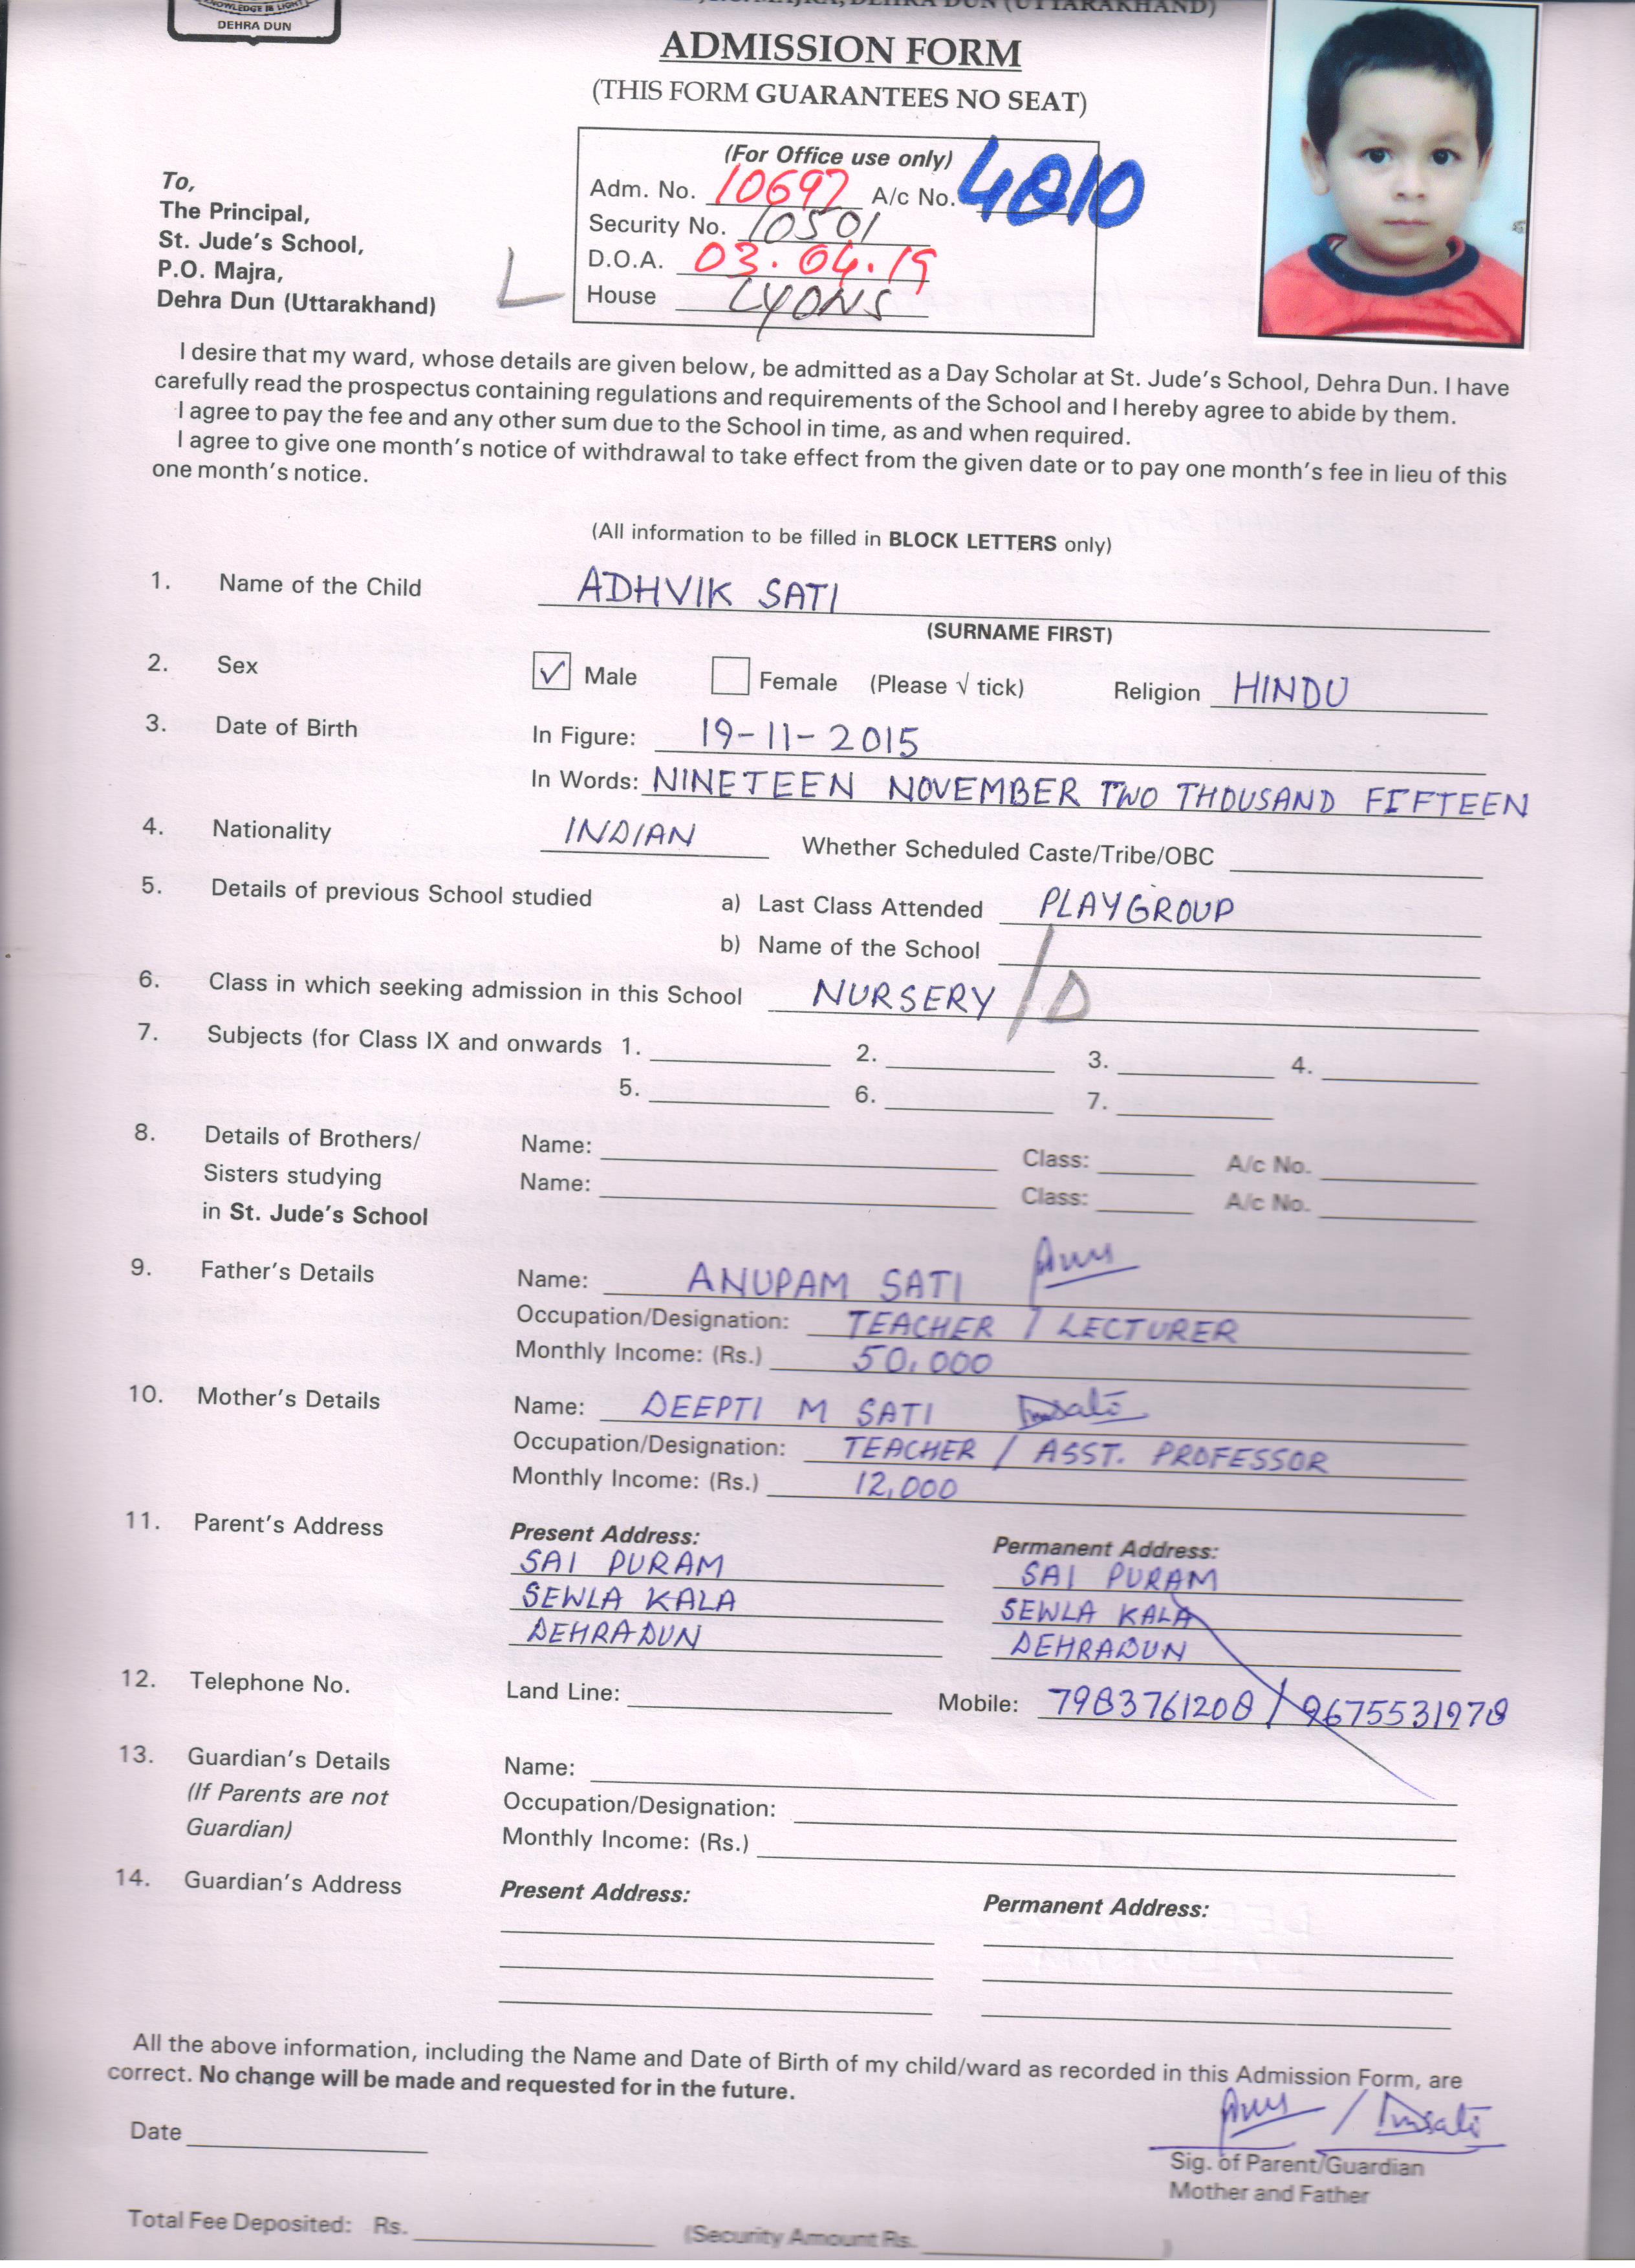 KNOWLEDGE IS LIGHT
DEHRA DUN
MAJRA, DEHRA DUN (UTTARAKHAND)
ADMISSION FORM
(THIS FORM GUARANTEES NO SEAT)
(For Office use only)
Adm. No. 10697 A/c No. 4810
Security No. 10501
D.O.A. 03.04.19
House LYONS
To,
The Principal,
St. Jude's School,
P.O. Majra,
Dehra Dun (Uttarakhand)
L
I desire that my ward, whose details are given below, be admitted as a Day Scholar at St. Jude's School, Dehra Dun. I have
carefully read the prospectus containing regulations and requirements of the School and I hereby agree to abide by them.
I agree to pay the fee and any other sum due to the School in time, as and when required.
I agree to give one month's notice of withdrawal to take effect from the given date or to pay one month's fee in lieu of this
one month's notice.
(All information to be filled in BLOCK LETTERS only)
1. Name of the Child ADHVIK SATI
(SURNAME FIRST)
2. Sex ✓ Male Female (Please √ tick) Religion HINDU
3. Date of Birth In Figure: 19-11-2015
In Words: NINETEEN NOVEMBER TWO THOUSAND FIFTEEN
4. Nationality INDIAN Whether Scheduled Caste/Tribe/OBC
5. Details of previous School studied a) Last Class Attended PLAYGROUP
b) Name of the School
6. Class in which seeking admission in this School NURSERY / D
7. Subjects (for Class IX and onwards 1. 2. 3. 4.
5. 6. 7.
8. Details of Brothers/ Name: Class: A/c No.
Sisters studying Name: Class: A/c No.
in St. Jude's School
9. Father's Details Name: ANUPAM SATI
Occupation/Designation: TEACHER / LECTURER
Monthly Income: (Rs.) 50,000
10. Mother's Details Name: DEEPTI M SATI
Occupation/Designation: TEACHER / ASST. PROFESSOR
Monthly Income: (Rs.) 12,000
11. Parent's Address Present Address: Permanent Address:
SAI PURAM SAI PURAM
SEWLA KALA SEWLA KALA
DEHRADUN DEHRADUN
12. Telephone No. Land Line: Mobile: 7983761208 / 9675531978
13. Guardian's Details Name:
(If Parents are not Occupation/Designation:
Guardian) Monthly Income: (Rs.)
14. Guardian's Address Present Address: Permanent Address:
All the above information, including the Name and Date of Birth of my child/ward as recorded in this Admission Form, are
correct. No change will be made and requested for in the future.
Date
Sig. of Parent/Guardian
Mother and Father
Total Fee Deposited: Rs. (Security Amount Rs. )